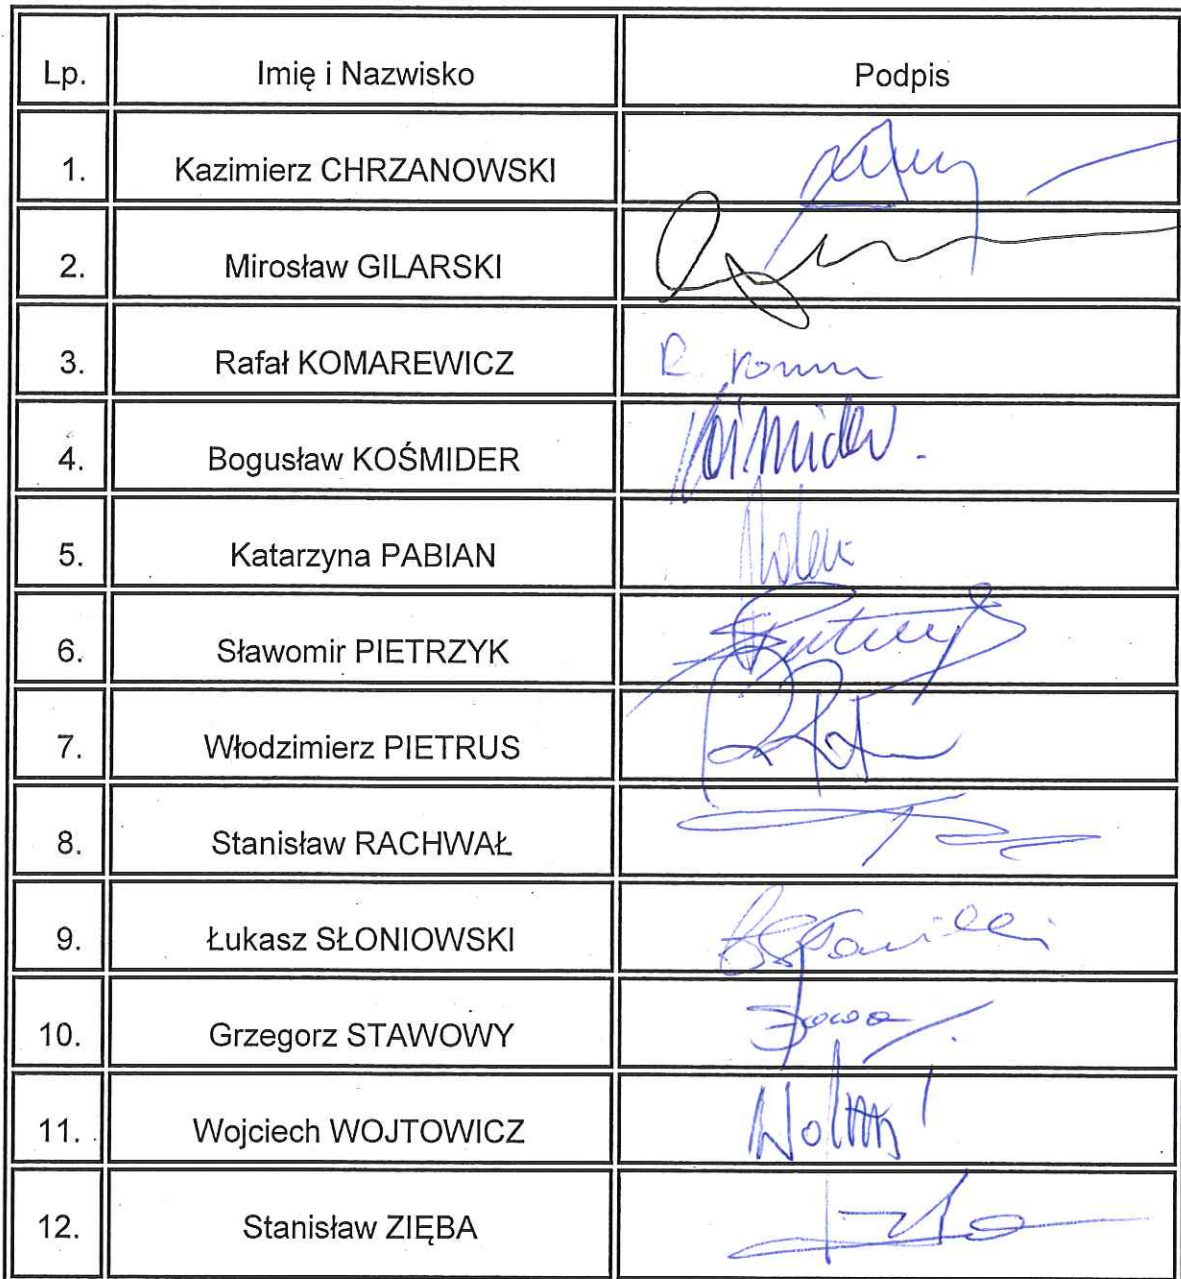 Lp. Imię i Nazwisko Podpis
1. Kazimierz CHRZANOWSKI
2. Mirosław GILARSKI
3. Rafał KOMAREWICZ R.
4. Bogusław KOŚMIDER Kośmider.
5. Katarzyna PABIAN
6. Sławomir PIETRZYK
7. Włodzimierz PIETRUS
8. Stanisław RACHWAŁ
9. Łukasz SŁONIOWSKI
10. Grzegorz STAWOWY
11. Wojciech WOJTOWICZ
12. Stanisław ZIĘBA